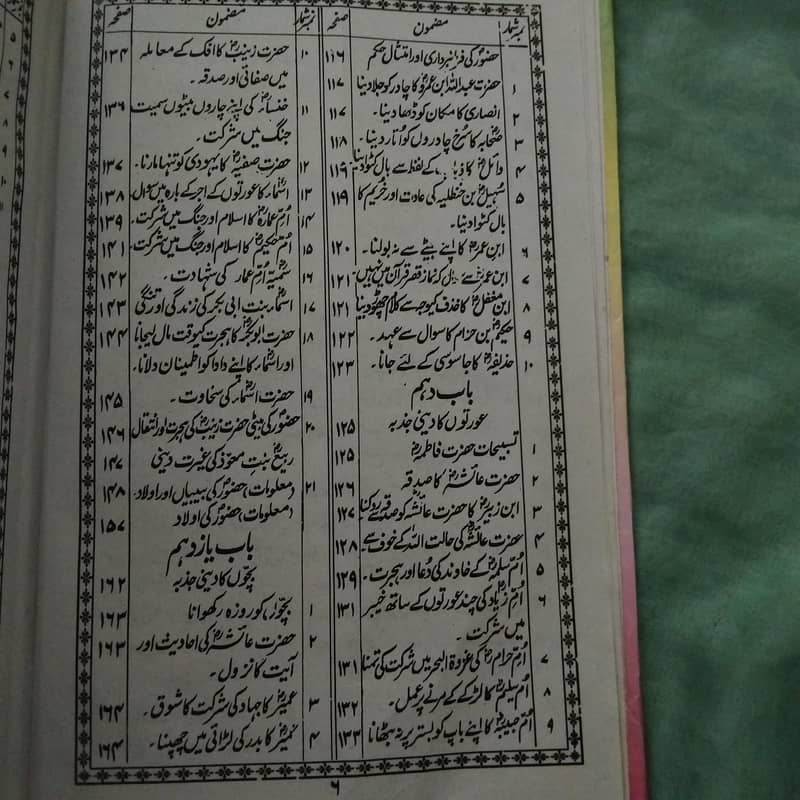 نمبر شمار مضمون صفحہ
حضورؐ کی فرمانبرداری اور امتثال حکم ۱۱۶
۱ حضرت عبداللہ ابن عمروؓ کا چادر کو جلا دینا ۱۱۷
۲ انصاری کا مکان کو ڈھا دینا۔ ۱۱۷
۳ صحابہؓ کا سُرخ چادروں کو اُتار دینا۔ ۱۱۸
۴ وائلؓ کا ذباب کے لفظ سے بال کٹوا دینا ۱۱۹
۵ سہیلؓ بن حنظلیہ کی عادت اور خریم کا ۱۱۹
بال کٹوا دینا۔
۶ ابن عمرؓ کا اپنے بیٹے سے نہ بولنا۔ ۱۲۰
۷ ابن عمرؓ سے سوال کہ نماز قصر قرآن میں نہیں۔ ۱۲۱
۸ ابن مغفلؓ کا خذف کیوجہ سے کلام چھوڑ دینا ۱۲۱
۹ حکیمؓ بن حزام کا سوال سے عہد۔ ۱۲۲
۱۰ حذیفہؓ کا جاسوسی کے لئے جانا۔ ۱۲۳
باب دہم
عورتوں کا دینی جذبہ ۱۲۵
۱ تسبیحات حضرت فاطمہؓ ۱۲۵
۲ حضرت عائشہؓ کا صدقہ ۱۲۶
۳ ابن زبیرؓ کا حضرت عائشہؓ کو صدقہ سے روکنا ۱۲۷
۴ حضرت عائشہؓ کی حالت اللہ کے خوف سے ۱۲۸
۵ اُمّ سلمہؓ کے خاوند کی دُعا اور ہجرت۔ ۱۲۹
۶ اُمّ زیادؓ کی چند عورتوں کے ساتھ خیبر ۱۳۱
میں شرکت۔
۷ اُمّ حرامؓ کی غزوۃ البحر میں شرکت کی تمنا ۱۳۱
۸ اُمّ سلیمؓ کا لڑکے کے مرنے پر عمل۔ ۱۳۲
۹ اُمّ حبیبہؓ کا اپنے باپ کو بستر پر نہ بٹھانا ۱۳۳
نمبر شمار مضمون صفحہ
۱۰ حضرت زینبؓ کا افک کے معاملہ ۱۳۴
میں صفائی اور صدقہ۔
۱۱ خنساءؓ کی اپنے چاروں بیٹوں سمیت ۱۳۶
جنگ میں شرکت۔
۱۲ حضرت صفیہؓ کا یہودی کو تنہا مارنا۔ ۱۳۷
۱۳ اسماءؓ کا عورتوں کے اجر کے بارہ میں سوال ۱۳۸
۱۴ اُمّ عمارہؓ کا اسلام اور جنگ میں شرکت۔ ۱۳۹
۱۵ اُمّ حکیمؓ کا اسلام اور جنگ میں شرکت۔ ۱۴۱
۱۶ سمیّہؓ اُمّ عمار کی شہادت۔ ۱۴۲
۱۷ اسماءؓ بنت ابی بکر کی زندگی اور تنگی ۱۴۳
۱۸ حضرت ابوبکرؓ کا ہجرت کیوقت مال لیجانا ۱۴۴
اور اسماءؓ کا اپنے دادا کو اطمینان دلانا۔
۱۹ حضرت اسماءؓ کی سخاوت۔ ۱۴۵
۲۰ حضورؐ کی بیٹی حضرت زینبؓ کی ہجرت اور انتقال ۱۴۶
ربیعؓ بنت معوذ کی غیرت دینی ۱۴۷
۲۱ (معلومات) حضورؐ کی بیبیاں اور اولاد۔ ۱۴۸
(معلومات) حضورؐ کی اولاد ۱۵۷
باب یازدہم
بچّوں کا دینی جذبہ ۱۶۲
۱ بچّوں کو روزہ رکھوانا ۱۶۳
۲ حضرت عائشہؓ کی احادیث اور ۱۶۳
آیت کا نزول۔
۳ عمیرؓ کا جہاد کی شرکت کا شوق۔ ۱۶۴
۴ عمیرؓ کا بدر کی لڑائی میں چھپنا۔ ۱۶۴
۶